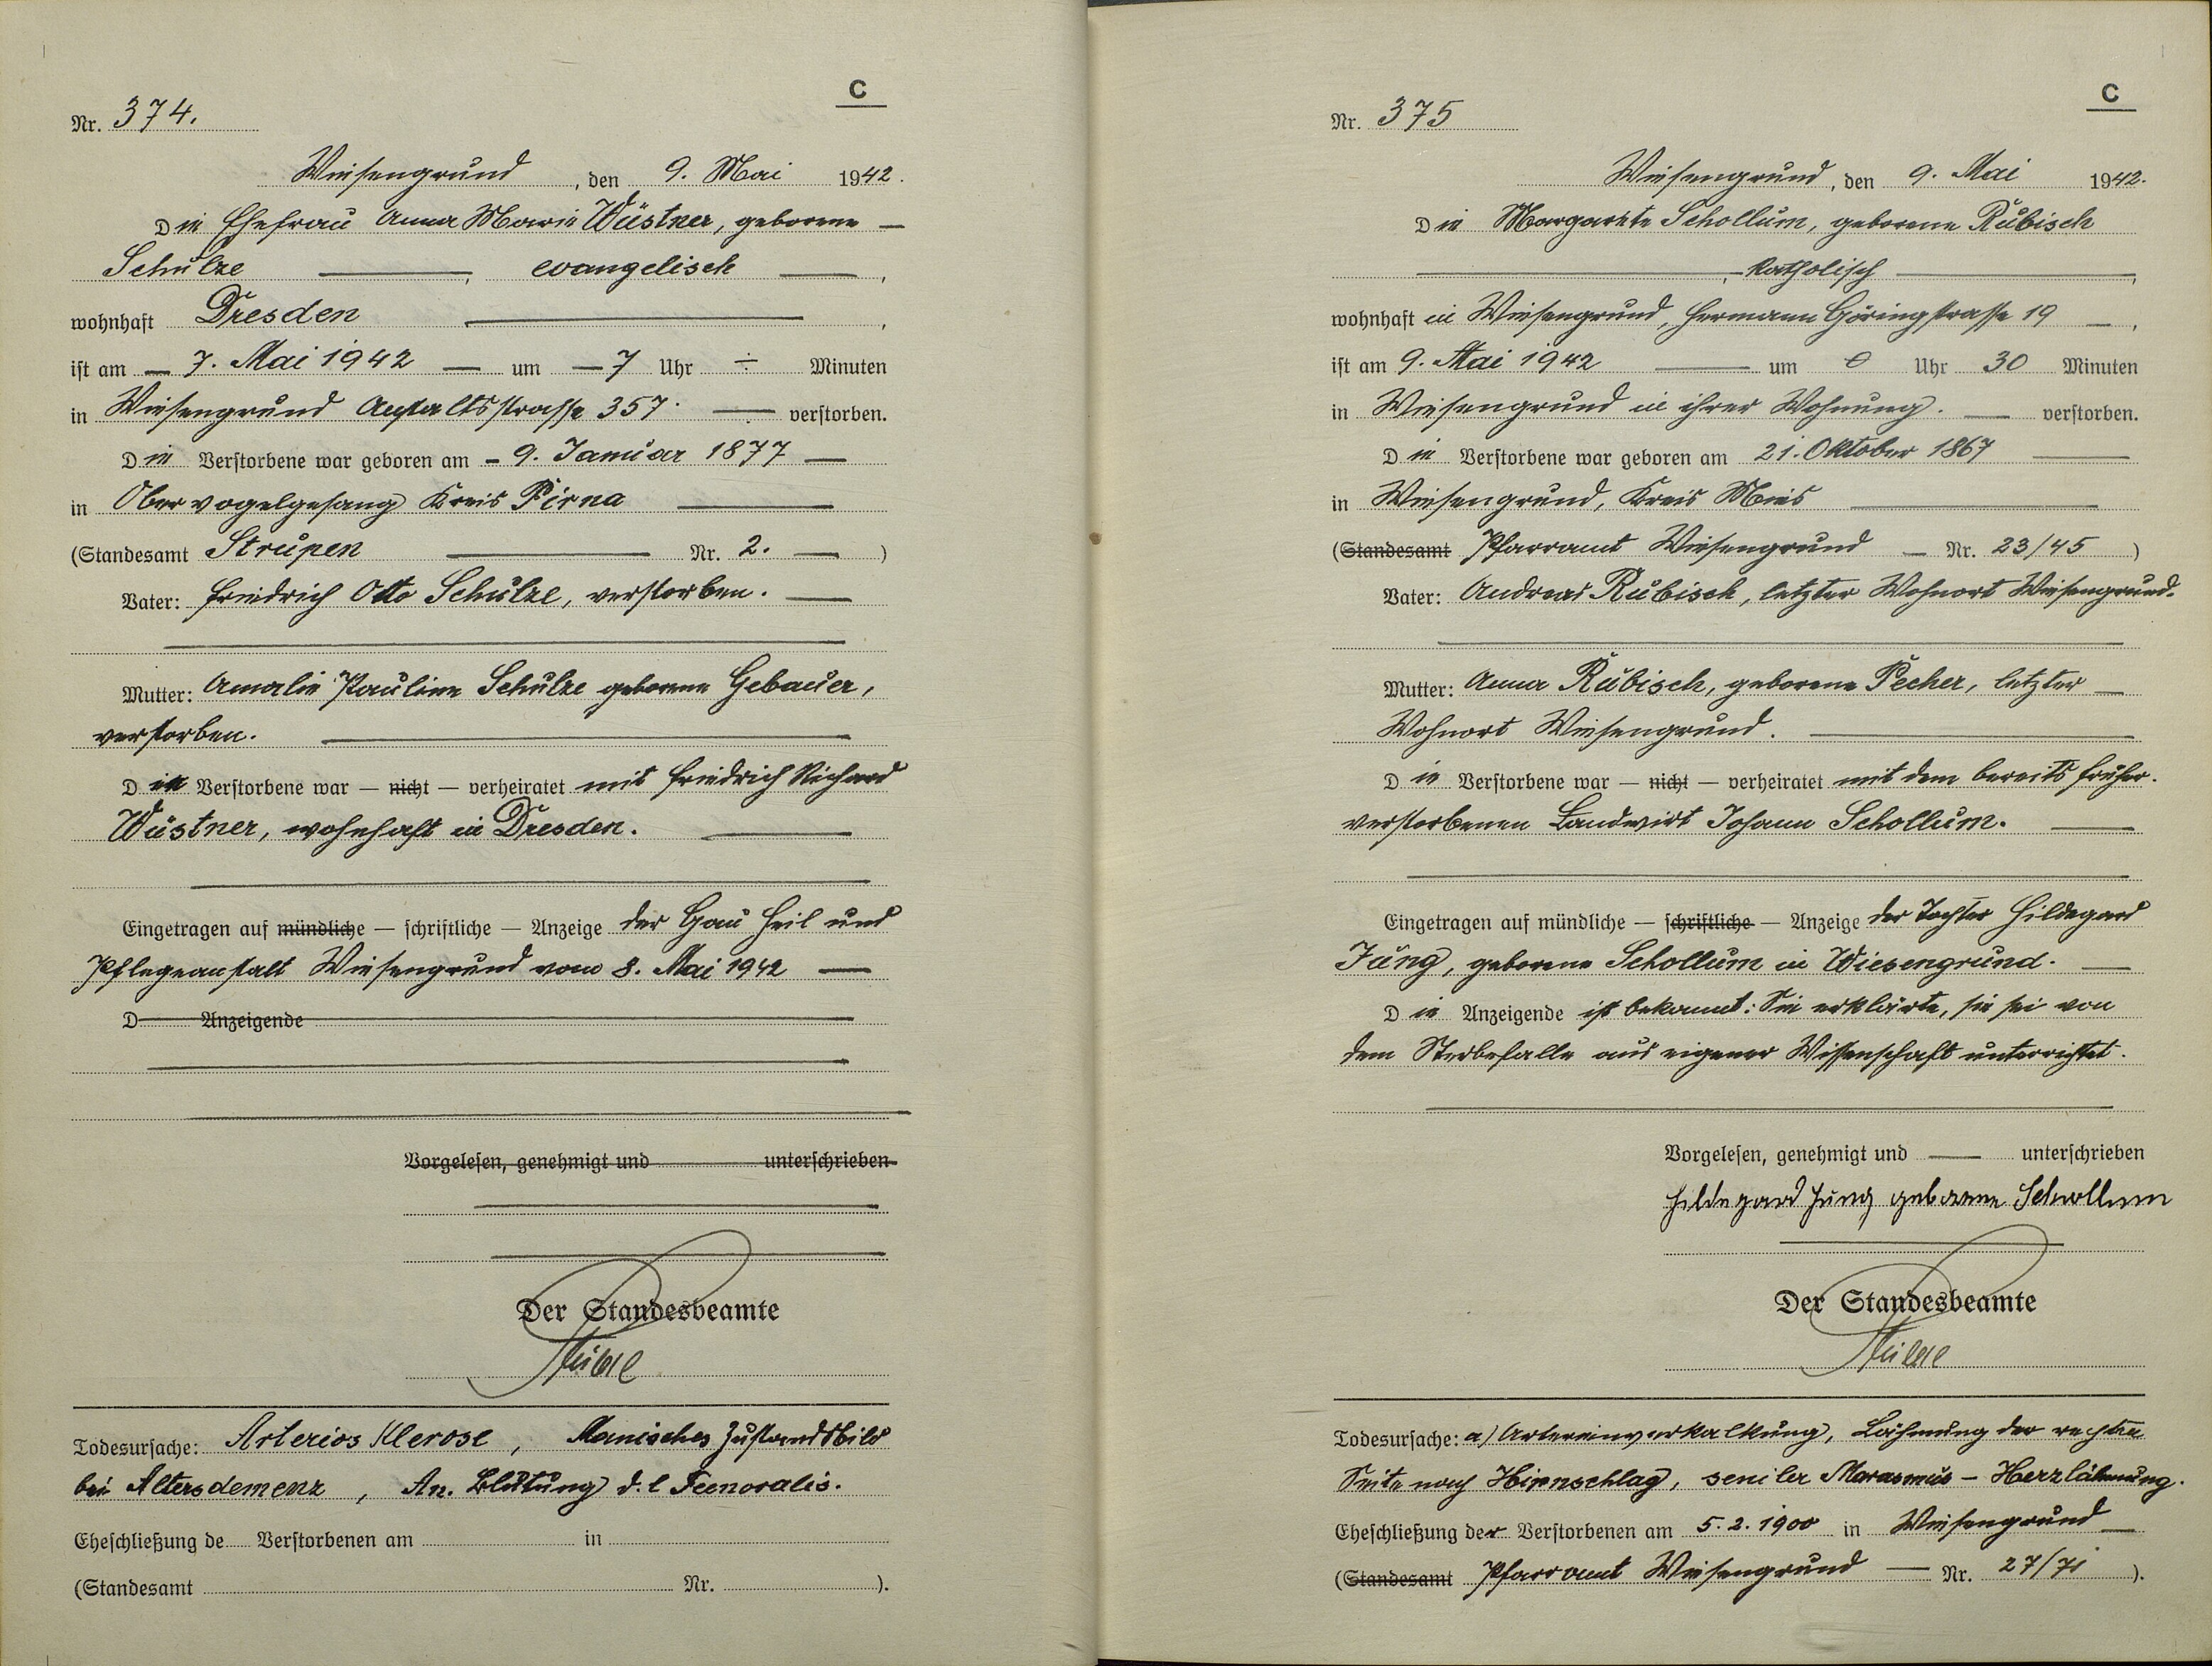 C
Nr. 374.
Wiesengrund, den 9. Mai 1942.
Die Ehefrau Anna Marie Wüstner, geborene —
Schulze —, evangelisch —,
wohnhaft Dresden —,
ist am — 7. Mai 1942 — um — 7 Uhr ÷ Minuten
in Wiesengrund Anstaltsstrasse 357. — verstorben.
Die Verstorbene war geboren am — 9. Januar 1877 —
in Obervogelgesang Kreis Pirna —
(Standesamt Strupen — Nr. 2. —)
Vater: Friedrich Otto Schulze, verstorben. —
Mutter: Amalie Pauline Schulze geborene Gebauer,
verstorben. —
Die Verstorbene war — nicht — verheiratet mit Friedrich Richard
Wüstner, wohnhaft in Dresden. —
Eingetragen auf mündliche — schriftliche — Anzeige der Gau Heil und
Pflegeanstalt Wiesengrund vom 8. Mai 1942 —
D Anzeigende
Vorgelesen, genehmigt und unterschrieben
Der Standesbeamte
Todesursache: Arteriosklerose, Manisches Zustandsbild
bei Altersdemenz, An. Blutung d. l Femoralis.
Eheschließung de Verstorbenen am in
(Standesamt Nr. ).
C
Nr. 375
Wiesengrund, den 9. Mai 1942.
Die Margarete Schollum, geborene Rubisch
—, katholisch —,
wohnhaft in Wiesengrund, Hermann Göringstrasse 19 —,
ist am 9. Mai 1942 — um 0 Uhr 30 Minuten
in Wiesengrund in ihrer Wohnung. — verstorben.
Die Verstorbene war geboren am 21. Oktober 1867 —
in Wiesengrund, Kreis Mies —
(Standesamt Pfarramt Wiesengrund — Nr. 23/45)
Vater: Andreas Rubisch, letzter Wohnort Wiesengrund.
Mutter: Anna Rubisch, geborene Pecher, letzter —
Wohnort Wiesengrund. —
Die Verstorbene war — nicht — verheiratet mit dem bereits früher
verstorbenen Landwirt Johann Schollum. —
Eingetragen auf mündliche — schriftliche — Anzeige der Tochter Hildegard
Jung, geborene Schollum in Wiesengrund. —
Die Anzeigende ist bekannt: Sie erklärte, sie sei von
dem Sterbefalle aus eigener Wissenschaft unterrichtet.
Vorgelesen, genehmigt und — unterschrieben
Hildegard Jung geborene Schollum
Der Standesbeamte
Todesursache: a) Arterienverkalkung, Lähmung der rechten
Seite nach Hirnschlag, seniler Marasmus – Herzlähmung.
Eheschließung der Verstorbenen am 5. 2. 1900 in Wiesengrund —
(Standesamt Pfarramt Wiesengrund — Nr. 27/71).